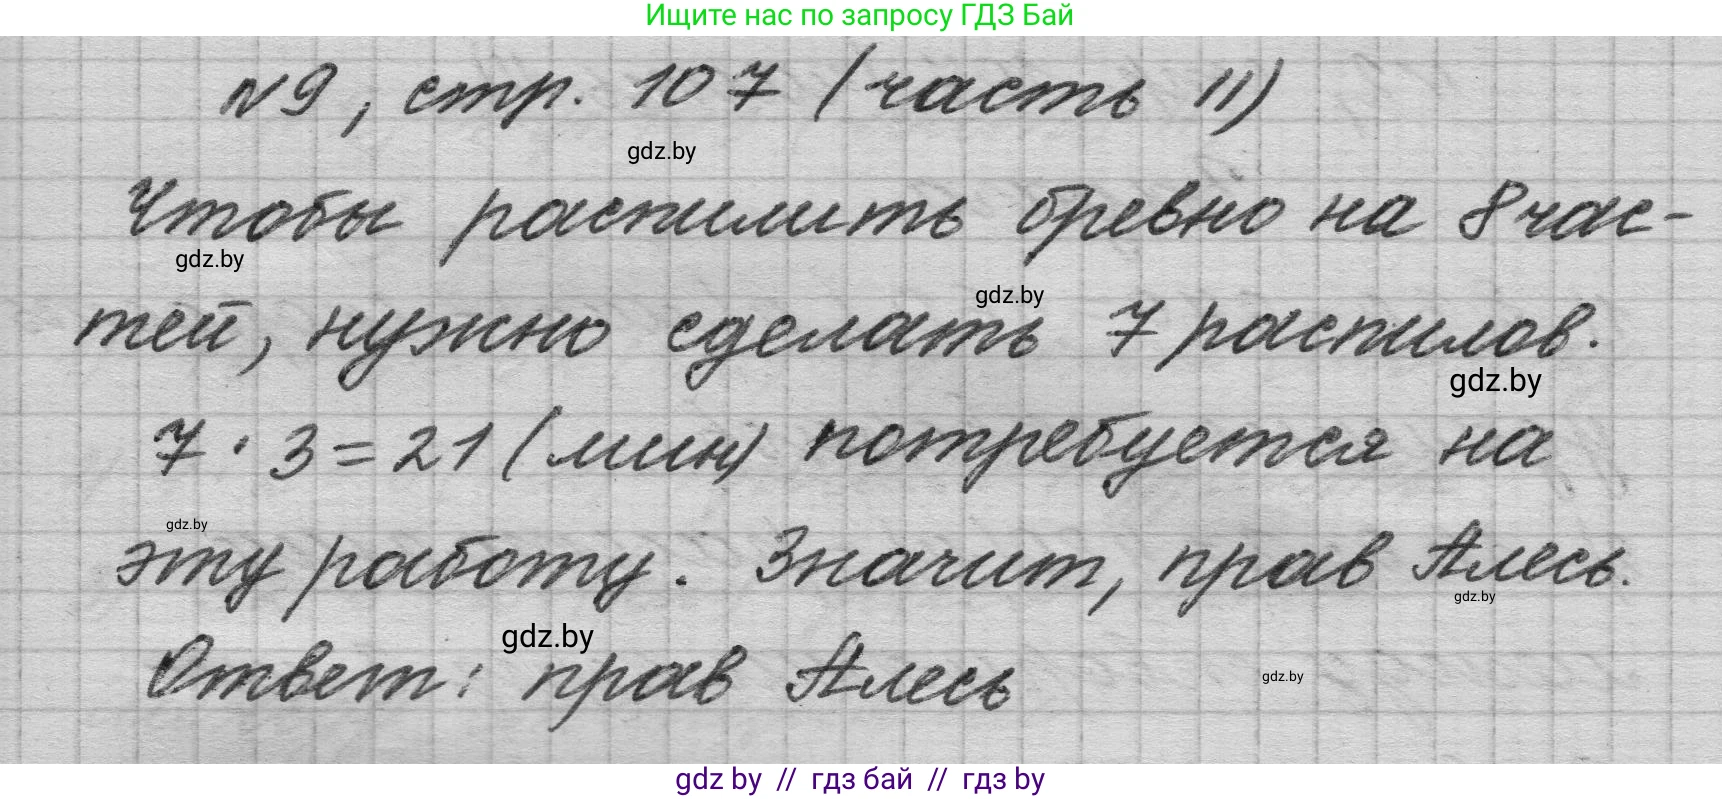 Ищите нас по запросу ГДЗ Бай
№9, стр. 107 (часть II)
gdz.by
Чтобы распилить бревно на 8 час-
gdz.by
gdz.by
тей, нужно сделать 7 распилов.
gdz.by
7 · 3 = 21 (мин) потребуется на
gdz.by
эту работу. Значит, прав Алесь.
gdz.by
gdz.by
Ответ: прав Алесь
gdz.by
gdz by // гдз бай // гдз by